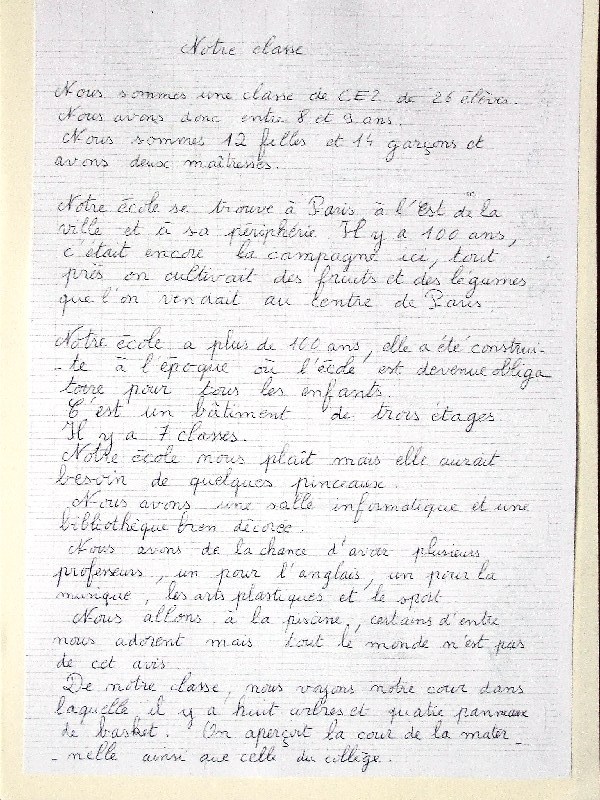 Notre classe
Nous sommes une classe de CE2 de 26 élèves.
Nous avons donc entre 8 et 9 ans.
Nous sommes 12 filles et 14 garçons et
avons deux maîtresses.
Notre école se trouve à Paris, à l'Est de la
ville et à sa périphérie. Il y a 100 ans,
c'était encore la campagne ici, tout
près on cultivait des fruits et des légumes
que l'on vendait au centre de Paris.
Notre école a plus de 100 ans, elle a été construi-
-te à l'époque où l'école est devenue obliga
toire pour tous les enfants.
C'est un bâtiment de trois étages.
Il y a 7 classes.
Notre école nous plaît mais elle aurait
besoin de quelques pinceaux.
Nous avons une salle informatique et une
bibliothèque bien décorée.
Nous avons de la chance d'avoir plusieurs
professeurs, un pour l'anglais, un pour la
musique, les arts plastiques et le sport
Nous allons à la piscine, certains d'entre
nous adorent mais tout le monde n'est pas
de cet avis.
De notre classe, nous voyons notre cour dans
laquelle il y a huit arbres et quatre panneaux
de basket. On aperçoit la cour de la mater-
-nelle ainsi que celle du collège.